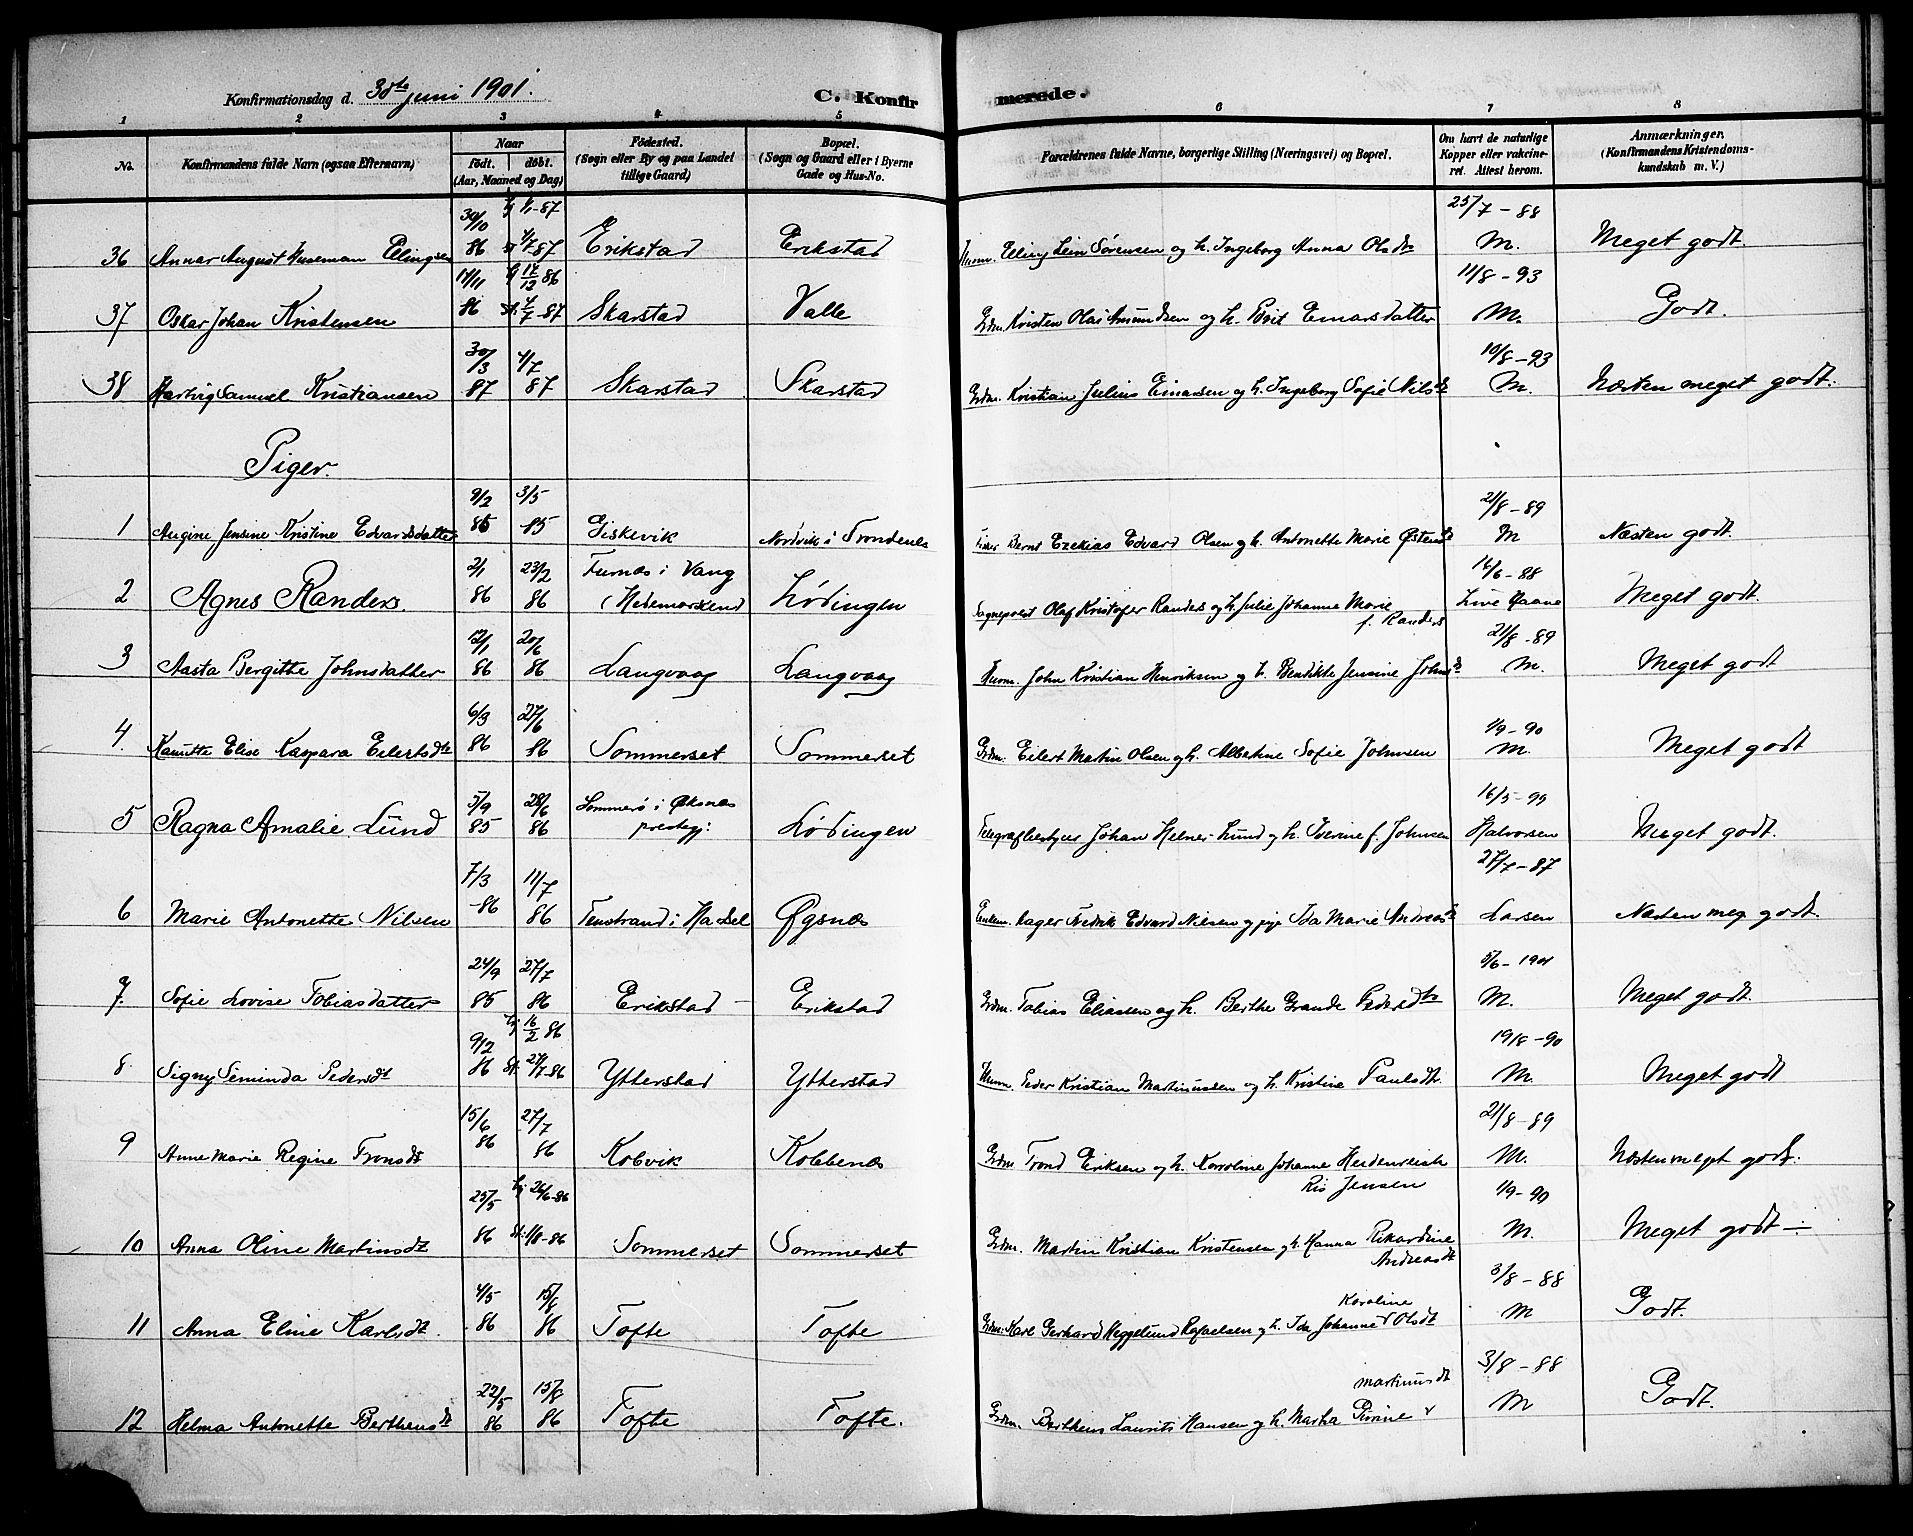 Konfirmationsdag d. 30te juni 1901.
C. Konfirmerede.
1 2 3 4 5 6 7 8
No. Konfirmandens fulde Navn (ogsaa Efternavn) Naar født. døbt. (Aar, Maaned og Dag) Fødested. (Sogn eller By og paa Landet tillige Gaard) Bopæl. (Sogn og Gaard eller i Byerne Gade og Hus-No. Forældrenes fulde Navne, borgerlige Stilling (Næringsvei) og Bopæl. Om havt de naturlige Kopper eller vakcineret. Attest herom. Anmærkninger. (Konfirmandens Kristendomskundskab m. V.)
30/10 1/1-87 25/7-88
36 Annar August Huseman Ellingsen 86 4/7 87 Erikstad Erikstad Husm. Elling Lein Sørensen og h. Ingeborg Anna Olsdtr M. Meget godt.
11/11 17/12 86 11/8-93
37 Oskar Johan Kristensen 86 4/7-87 Skarstad Valle Grdm. Kristen Olai Amundsen og h. Berit Einarsdatter M. Godt.
30/3 4/7 10/8-93
38 Hartvig Samuel Kristiansen 87 87 Skarstad Skarstad Grdm. Kristian Julius Einarsen og h. Ingeborg Sofie Nilsdt M. Næsten meget godt.
Piger.
9/2 3/5 21/8-89
1 Augine Jensine Kristine Edvardsdatter 85 -85 Giskevik Nordvik i Trondenes Fisker Bernt Ezekias Edvard Olsen og h. Antonette Marie M Næsten godt.
2/1 23/2 Furnæs i Vang 14/6-88
2 Agnes Randers. 86 86 (Hedemarken) Lødingen Sogneprest Olaf Kristofer Randers og h. Julie Johanne Marie f. Randers Meget godt.
12/1 20/6 21/8-89
3 Aasta Bergitte Johnsdatter 86 86 Langvaag Langvaag Husm. John Kristian Henriksen og h. Bendikte Jensine Johnsdt M. Meget godt
6/3 27/6 1/9-90
4. Kanutte Elise Kaspara Eilertsdtr 86 86 Sommerset Sommerset Grdm. Eilert Martin Olsen og h. Albertine Sofie Johnsen M. Meget godt
5/9 28/6 Sommerø i Øksnæs 16/5-99
5 Ragna Amalie Lund 85 86 prestegj: Lødingen Telegrafbestyrer Johan Helner Lund og h. Iverine f. Johnsen Halvorsen Meget godt.
7/3 11/7 27/7-87
6 Marie Antonette Nilsen -86 86 i Hadsel Øgsnæs Enkem. Hager Fredrik Edvard Nilsen og pige Ida Marie Andreasdt Larsen Næsten meg. godt.
24/9 27/7 5/6-1901
7. Sofie Lovise Tobiasdatter 85 86 Erikstad Erikstad Grdm. Tobias Eliassen og h. Berthe Grande Pedersdtr M. Meget godt.
9/2 16/2 86 19/8-90
8. Signy Seminda Pedersdt 86 St. 27/7-86 Ytterstad Ytterstad Husm. Peder Kristian Martinussen og h. Kristine Paulsdtr. M. Meget godt
15/6 27/7 21/8-89
9 Anne Marie Regine Tronsdt 86 86 Kobvik Kobbenes Grdm Trond Eriksen og h. Karoline Johanne Heidenreich Ris Jensen M. Næsten meget godt.
25/5 26/6-86 1/9-90
10 Anna Oline Martinsdt 86 St. 1/8-86 Sommerset Sommerset Grdm. Martin Kristian Kristensen og h. Hanna Rikardine Andreasdt M. Meget godt ÷
4/5 15/8 3/8-88
11 Anna Eline Karlsdt. 86 86 Tofte Tofte Grdm. Karl Gerhard Heggelund Rafaelsen og h. Ida Johanne Karoline Olsdt M Godt.
22/5 15/8 3/8-88
12 Helma Antonette Berthensdt 86 86 Tofte Tofte. Grdm. Berthens Laurits Hansen og h. Martha Martinusdt M Godt.